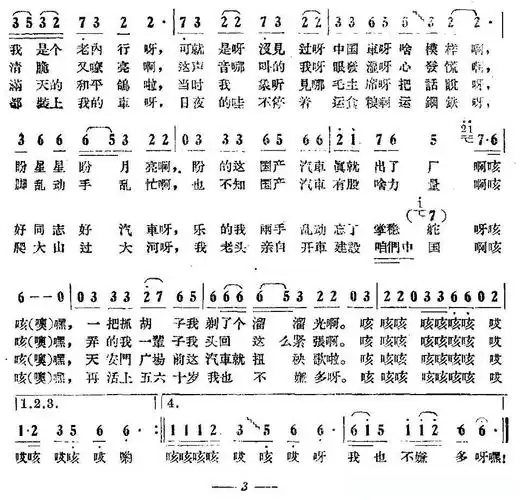 3 5 3 2 7 3 2 2· 7 3 2 2 7 3 2 2 3 3 5 0 5 3 2 2·
我 是个 老内 行呀, 可就 是呀 没見 过呀 中国 車呀 啥 模样 啊,
清 脆 又嘹 亮啊, 这声 音哪 叫的 我呀 眼發 潼呀 心 發 慌啦,
满 天的 和平 鴿 啦, 当时 我 象听 見哪 毛主 席呀 把 話 說 呀,
都 装上 我的 車呀, 日夜 的哇 不停 着 运食 粮啊 运 鋼鉄 呀,
3 6 6 6 5 3 2 2 3 0 2 3 6 6 2 1 7 6 5 7·6
盼 星星 盼 月 亮啊, 盼 的这 国产 汽車 真就 出了 厂 啊咳
脚 乱动 手 乱 忙啊, 也 不知 国产 汽車 有股 啥力 量 啊咳
好 同志 好 汽 車呀, 乐 的我 两手 乱动 忘了 掌稳 舵 呀咳
爬 大山 过 大 河呀, 我 老头 亲自 开車 建設 咱們中 国 啊咳
6 - - 0 0 3 3 3 2 7 6 5 1 6 6 6 5 3 2 2 0 3 0 3 0 3 3 6 6 0 2
咳(噢)嘿, 一 把抓 胡 子我 剃了个 溜 溜光啊。 咳 咳 咳咳咳咳 哎
咳(噢)嘿, 弄 的我 一輩 子我 头回 这 么 紧 張啊。 咳 咳 咳咳咳咳 哎
咳(噢)嘿, 天 安門 广場 前这 汽車就 扭 秧歌啦。 咳 咳 咳咳咳咳 哎
咳(噢)嘿, 再 活上 五六 十岁 我也 不 嫌 多呀。 咳 咳 咳咳咳咳 哎
1.2.3. 4.
1·2 3 5 6 6· 1 1 1 2 3 6 6· 6 1 5 1 1 2 6 6·
哎咳 哎咳 哎 喲 咳咳咳咳 哎 哎 呀 我 也 不嫌 多 呀嘿!
— 3 —